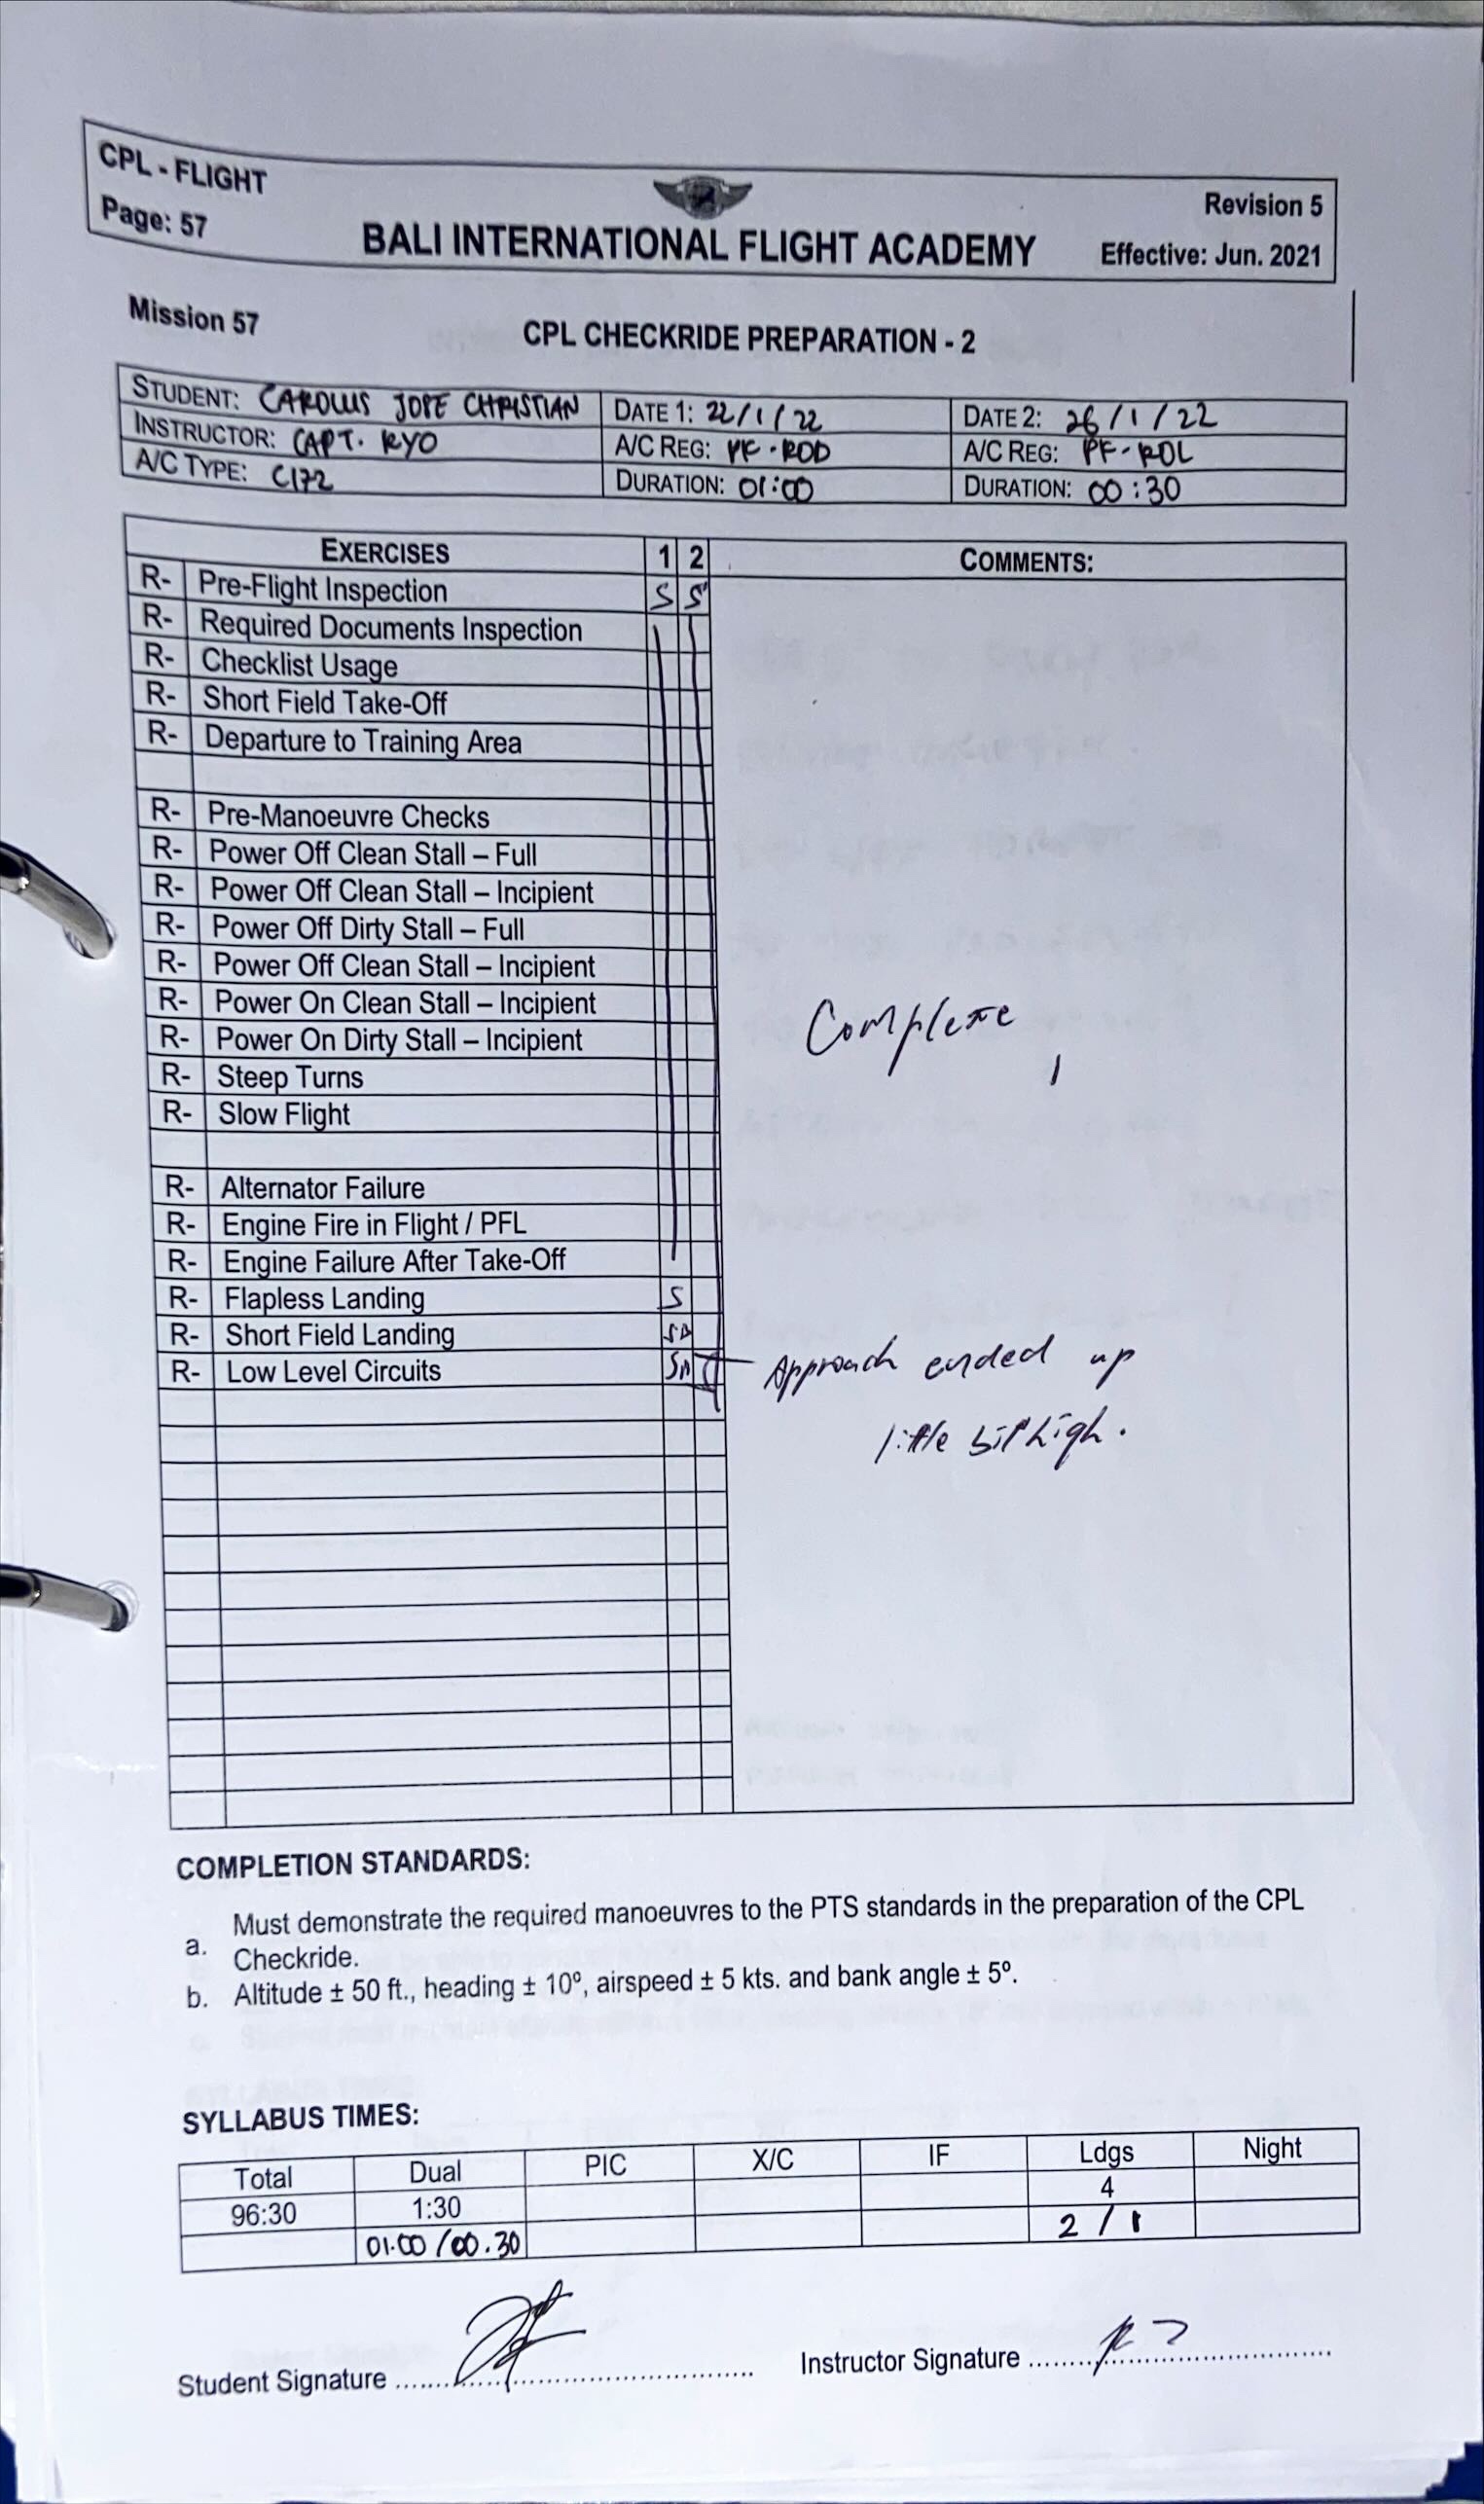 CPL - FLIGHT
Page: 57
BALI INTERNATIONAL FLIGHT ACADEMY
Revision 5
Effective: Jun. 2021
Mission 57
CPL CHECKRIDE PREPARATION - 2
STUDENT: CAROLUS JOSE CHRISTIAN DATE 1: 22/1/22 DATE 2: 26/1/22
INSTRUCTOR: CAPT. RYO A/C REG: PK-ROD A/C REG: PK-ROL
A/C TYPE: C172 DURATION: 01:00 DURATION: 00:30
EXERCISES 1 2 COMMENTS:
R- Pre-Flight Inspection S S
R- Required Documents Inspection
R- Checklist Usage
R- Short Field Take-Off
R- Departure to Training Area
R- Pre-Manoeuvre Checks
R- Power Off Clean Stall – Full
R- Power Off Clean Stall – Incipient
R- Power Off Dirty Stall – Full
R- Power Off Clean Stall – Incipient
R- Power On Clean Stall – Incipient
R- Power On Dirty Stall – Incipient
Complete
R- Steep Turns
R- Slow Flight
R- Alternator Failure
R- Engine Fire in Flight / PFL
R- Engine Failure After Take-Off
R- Flapless Landing S
R- Short Field Landing
R- Low Level Circuits
Approach ended up
little bit high.
COMPLETION STANDARDS:
a. Must demonstrate the required manoeuvres to the PTS standards in the preparation of the CPL
Checkride.
b. Altitude ± 50 ft., heading ± 10º, airspeed ± 5 kts. and bank angle ± 5º.
SYLLABUS TIMES:
Total Dual PIC X/C IF Ldgs Night
96:30 1:30 4
01.00 / 00.30 2 / 1
Student Signature Instructor Signature